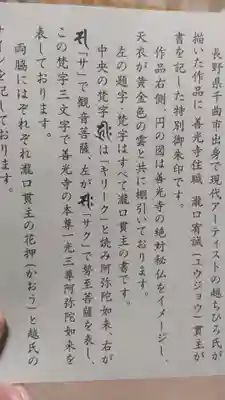 長野県千曲市出身で現代アーティストの越ちひろ氏が
描いた作品に善光寺住職、瀧口宥誠(ユウジョウ)貫主が
書を記した特別御朱印です。
作品右側、円の図は善光寺の絶対秘仏をイメージし、
天衣が黄金色の雲と共に棚引いております。
左の題字・梵字はすべて瀧口貫主の書です。
中央の梵字は「キリーク」と読み阿弥陀如来、右が
「サ」で観音菩薩、左が「サク」で勢至菩薩を表し、
この梵字三文字で善光寺の本尊一光三尊阿弥陀如来を
表しております。
両脇にはそれぞれ瀧口貫主の花押(かおう)と越氏の
サインを記しております。